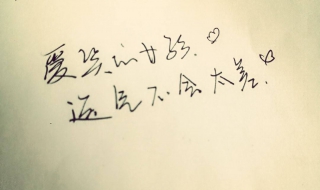 爱笑的女孩.♡
运气不会太差.♡